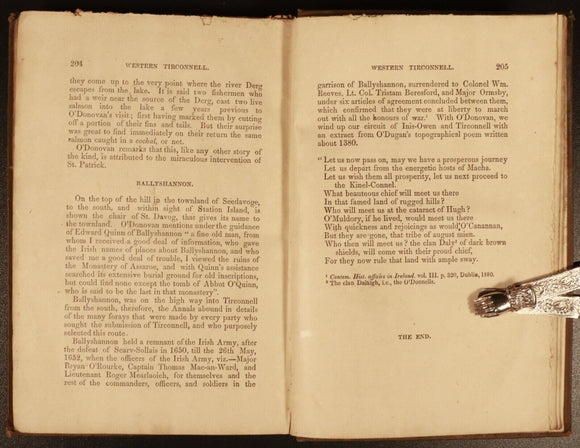 204 WESTERN TIRCONNELL.
they come up to the very point where the river Derg
escapes from the lake. It is said two fishermen who
had a weir near the source of the Derg, cast two live
salmon into the lake a few years previous to
O'Donovan's visit; first having marked them by cutting
off a portion of their fins and tails. But their surprise
was great to find immediately on their return the same
salmon caught in a cochal, or net.
O'Donovan remarks that this, like any other story of
the kind, is attributed to the miraculous intervention of
St. Patrick.
BALLYSHANNON.
On the top of the hill in the townland of Seedavoge,
to the south, and within sight of Station Island, is
shown the chair of St. Davog, that gives its name to
the townland. O'Donovan mentions under the guidance
of Edward Quinn of Ballyshannon "a fine old man, from
whom I received a good deal of information, who gave
the Irish names of places about Ballyshannon, and who
saved me a good deal of trouble, I viewed the ruins of
the Monastery of Assaroe, and with Quinn's assistance
searched its extensive burial ground for old inscriptions,
but could find none except the tomb of Abbot O'Quinn,
who is said to be the last in that monastery".
Ballyshannon, was on the high way into Tirconnell
from the south, therefore, the Annals abound in details
of the many forays that were made by every party who
sought the submission of Tirconnell, and who purposely
selected this route.
Ballyshannon held a remnant of the Irish Army, after
the defeat of Scarv-Sollais in 1650, till the 26th May,
1652, when the officers of the Irish Army, viz.—Major
Bryan O'Rourke, Captain Thomas Mac-an-Ward, and
Lieutenant Roger Mearlaoich, for themselves and the
rest of the commanders, officers, and soldiers in the
WESTERN TIRCONNELL. 205
garrison of Ballyshannon, surrendered to Colonel Wm.
Reeves, Lt. Col. Tristam Beresford, and Major Ormsby,
under six articles of agreement concluded between them,
which confirmed that they were at liberty to march
out with all the honours of war.¹ With O'Donovan, we
wind up our circuit of Inis-Owen and Tirconnell with
an extract from O'Dugan's topographical poem written
about 1380.
"Let us now pass on, may we have a prosperous journey
Let us depart from the energetic hosts of Macha.
Let us wish them all prosperity, let us next proceed to
the Kinel-Connel.
What beauteous chief will meet us there
In that famed land of rugged hills?
Who will meet us at the cataract of Hugh?
O'Muldory, if he lived, would meet us there
With quickness and rejoicings as would O'Canannan,
But they are gone, that tribe of august mien.
Who then will meet us? the clan Daly² of dark brown
shields, will come with their proud chief,
For they now rule that land with ample sway.
¹ Contem. Hist. affairs in Ireland. vol. III. p. 320, Dublin, 1880.
² The clan Dalaigh, i.e., the O'Donnells.
THE END.